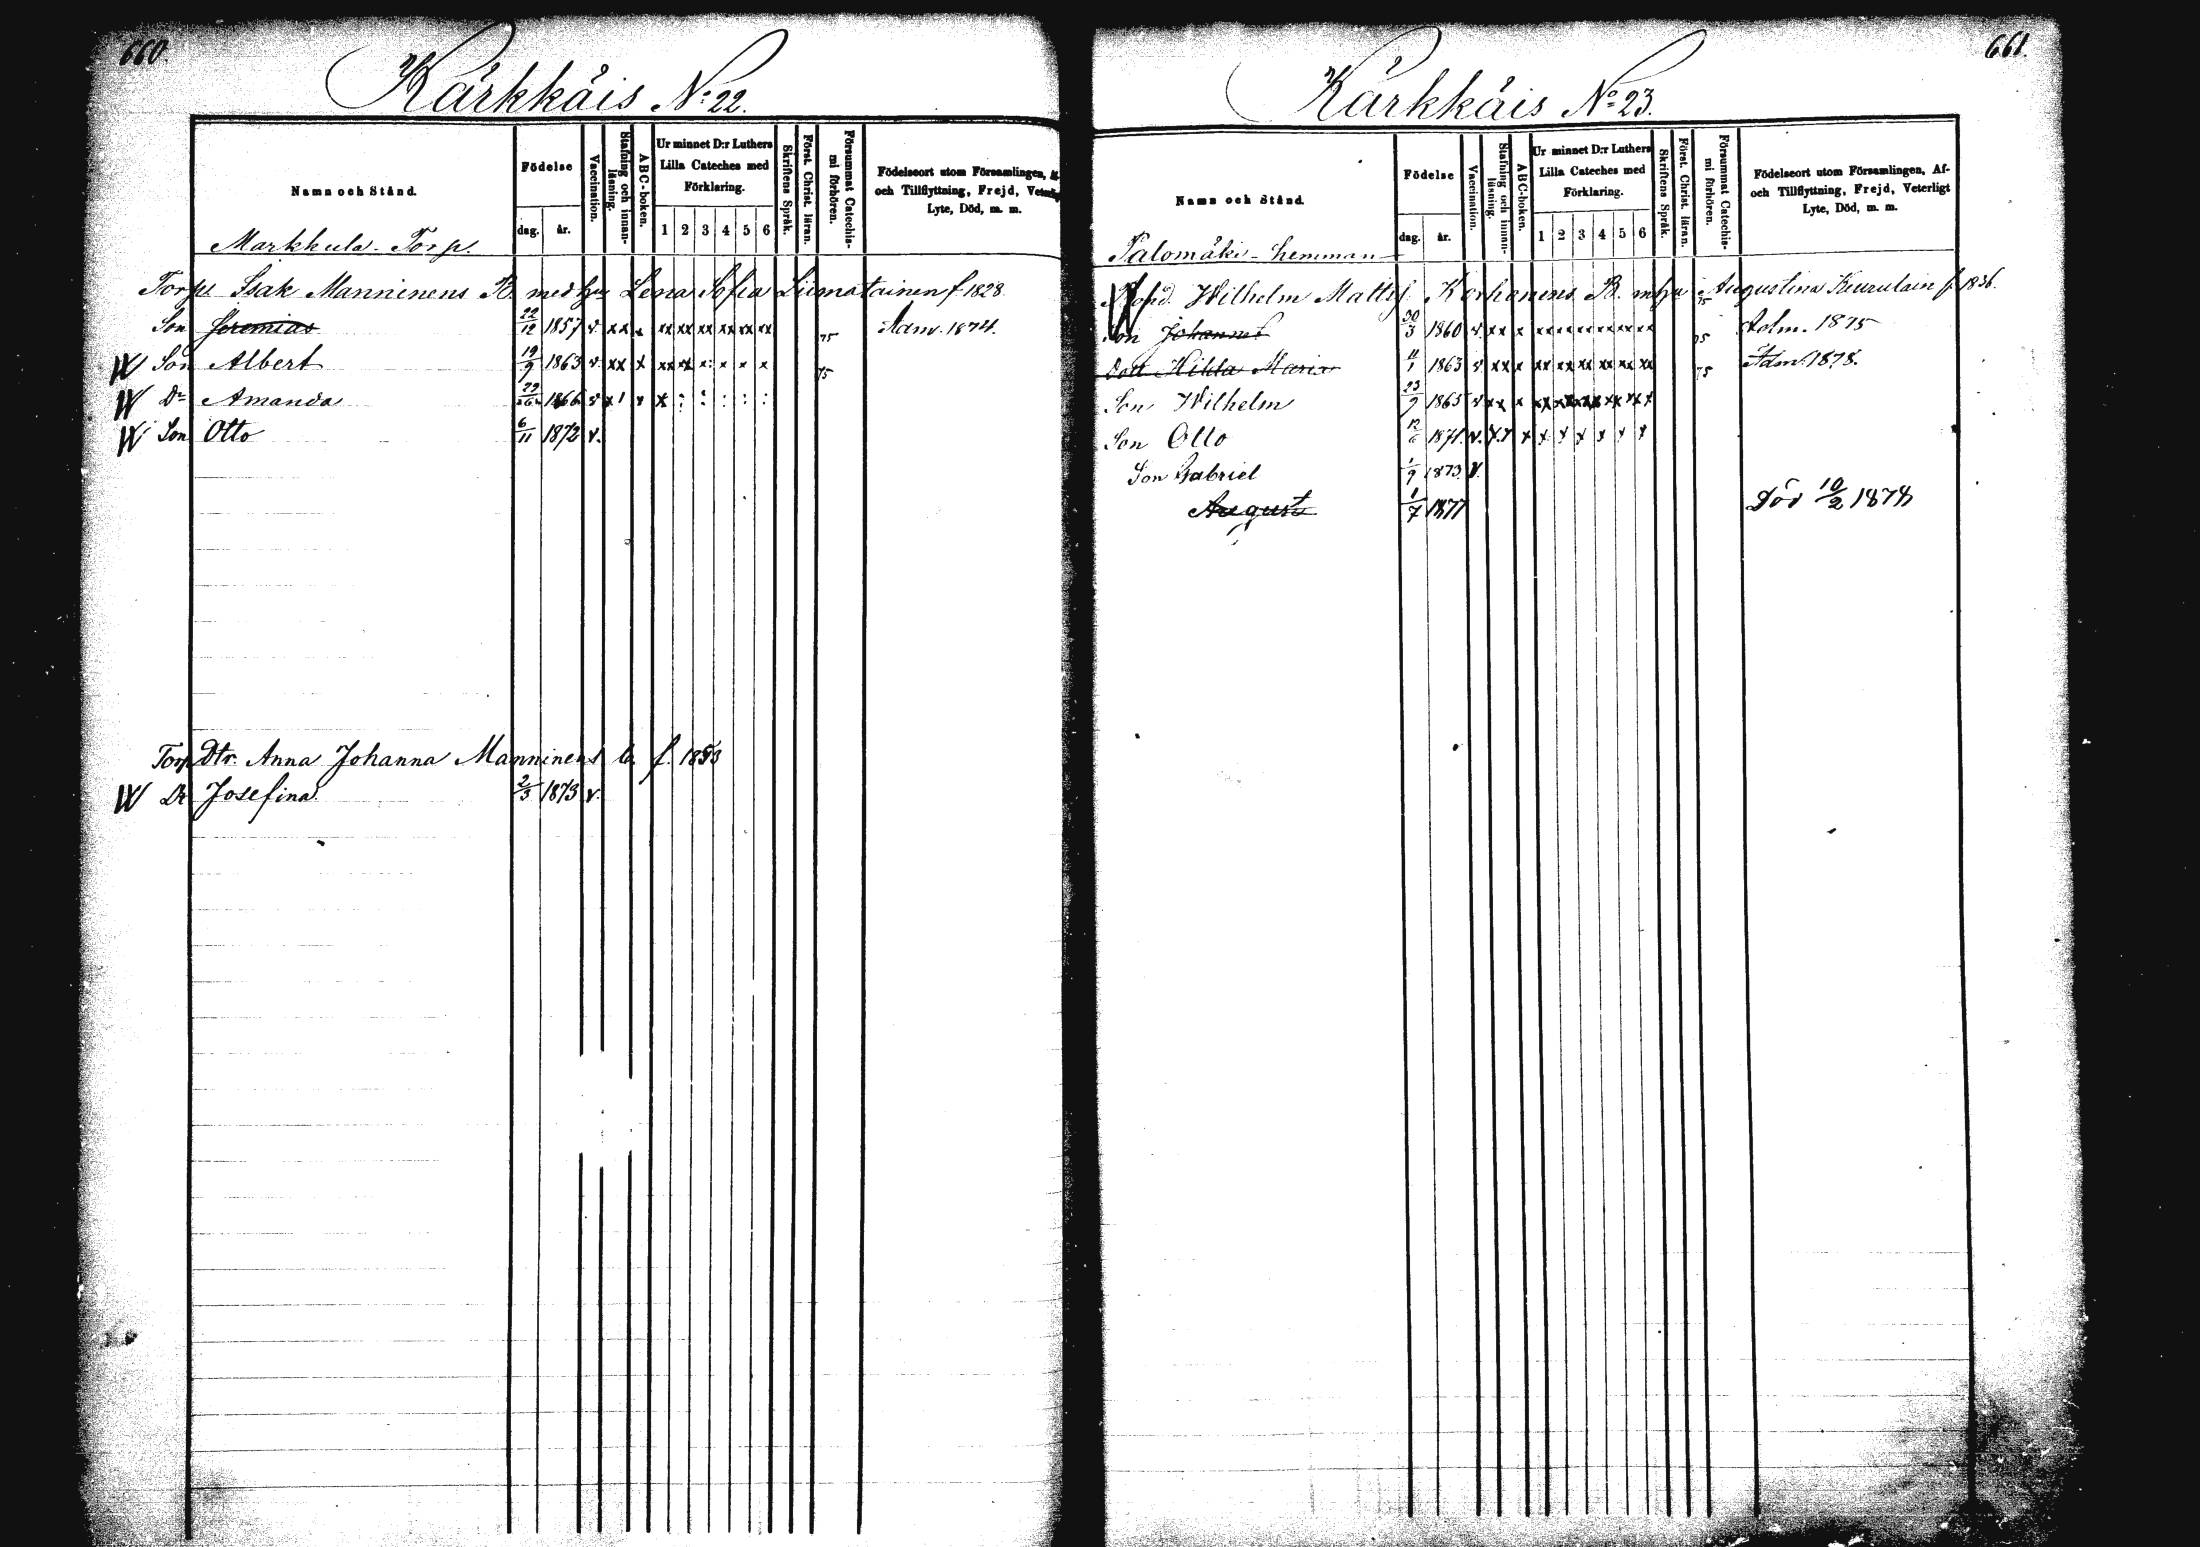 660.
Kärkkäis No: 22.
Namn och Stånd.
Födelse
dag.
år.
Vaccination.
Stafning och innan-
läsning.
ABC-boken.
Ur minnet D:r Luthers
Lilla Cateches med
Förklaring.
1 2 3 4 5 6
Skriftens Språk.
Först. Christ. läran.
Försummat Catechis-
mi förhören.
Födelseort utom Församlingen, Af-
och Tillflyttning, Frejd, Veterligt
Lyte, Död, m. m.
Markkula - Torp.
Torp. Isak Manninens B. med hu Lena Sofia Liimatainen f. 1828
Son Jeremias 22/12 1857 v xx x xx xx xx xx xx xx 75 Adm. 1874.
Son Albert 19/9 1863 v xx x xx xx x: x x x 75
Dr Amanda 1866 v x x : : : : :
Son Otto 6/11 1872 v.
Torp Dtr. Anna Johanna Manninens b. f. 1853
Dr Josefina. 2/3 1873 v.
661.
Kärkkäis No: 23.
Namn och Stånd.
Födelse
dag.
år.
Vaccination.
Stafning och innan-
läsning.
ABC-boken.
Ur minnet D:r Luthers
Lilla Cateches med
Förklaring.
1 2 3 4 5 6
Skriftens Språk.
Först. Christ. läran.
Försummat Catechis-
mi förhören.
Födelseort utom Församlingen, Af-
och Tillflyttning, Frejd, Veterligt
Lyte, Död, m. m.
Palomäki - hemman
Wilhelm Mattsj Korhonens B. m hu Augustina Keurulain f. 1836
Son Johannes 30/3 1860 v xx x xx xx xx xx xx xx 75 Adm. 1875
Dott Hilda Maria 11/1 1863 v xx x xx xx xx xx xx xx 75 Adm. 1878.
Son Wilhelm 23/9 1865 v xx x xx xx xx xx xx xx
Son Otto 12/6 1871 v. xx x x x x x x x
Son Gabriel 1/9 1873. v.
August 1/7 1877 Död 10/2 1878